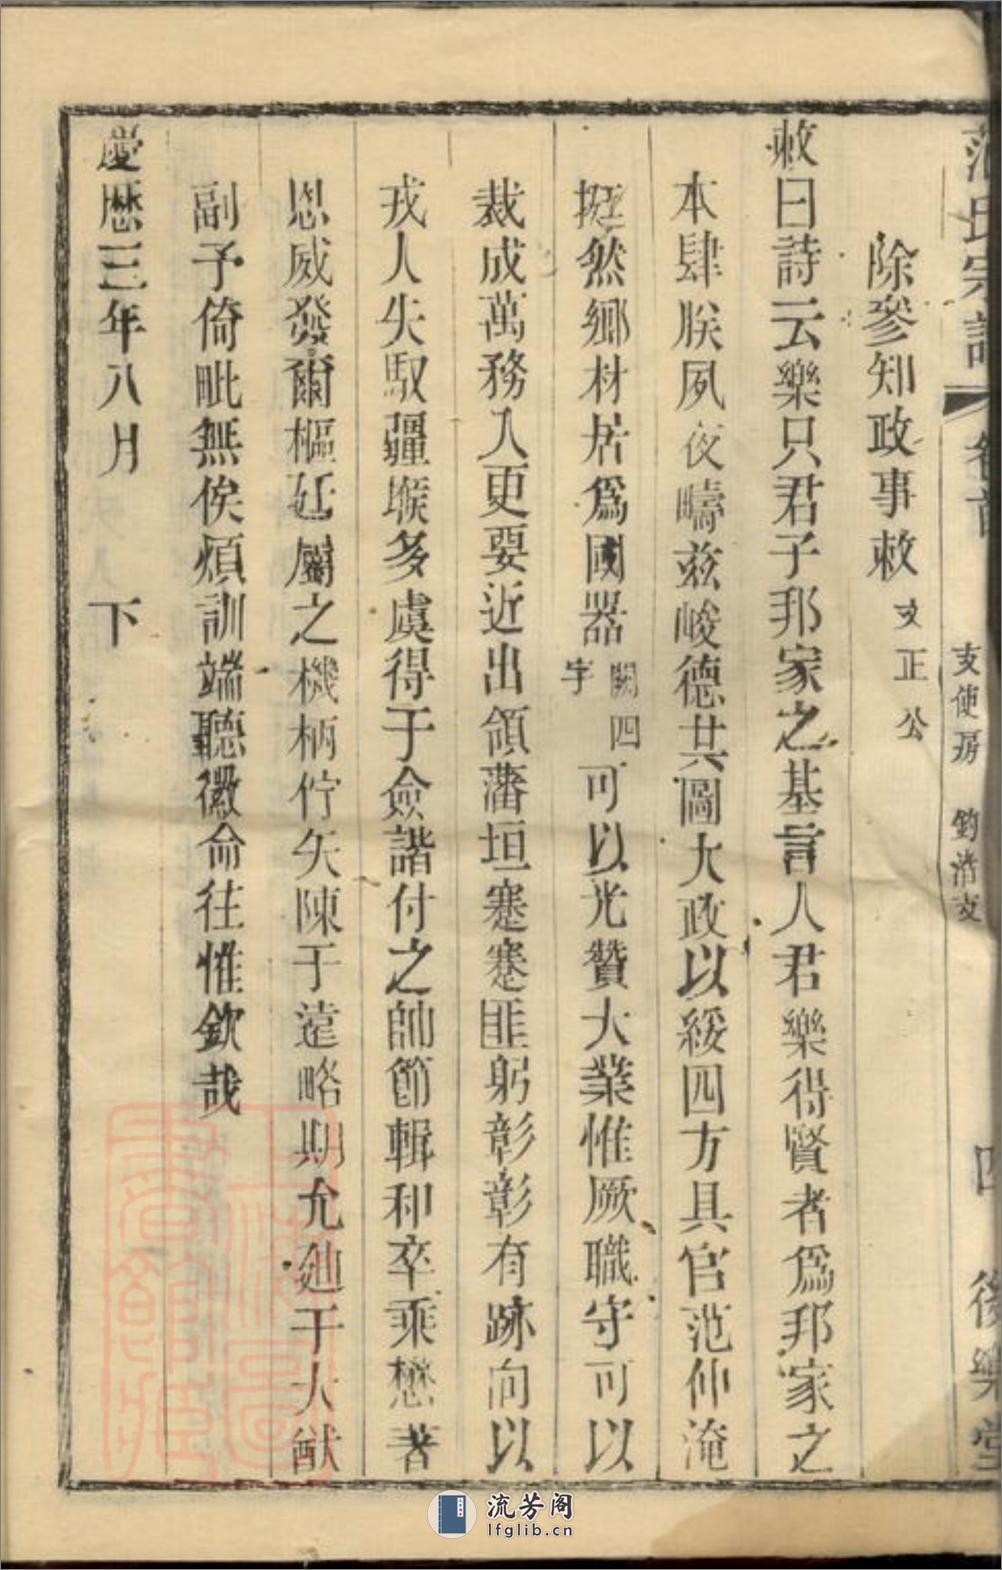 范氏宗譜 卷首 支使房 鈞浩支 四 後樂堂
除參知政事敕 文正公
敕曰詩云樂只君子邦家之基言人君樂得賢者爲邦家之
本肆朕夙夜疇茲峻德共圖大政以綏四方具官范仲淹
挺然鄉材居爲國器闕四字可以光贊大業惟厥職守可以
裁成萬務入更要近出領藩垣蹇蹇匪躬彰彰有跡向以
戎人失馭疆堠多虞得于僉諧付之帥節輯和卒乘懋著
恩威發爾樞廷屬之機柄佇矢陳于遠略期允迪于大猷
副予倚毗無俟煩訓端聽徽命往惟欽哉
慶歷三年八月 下
流芳阁
lfglib.cn